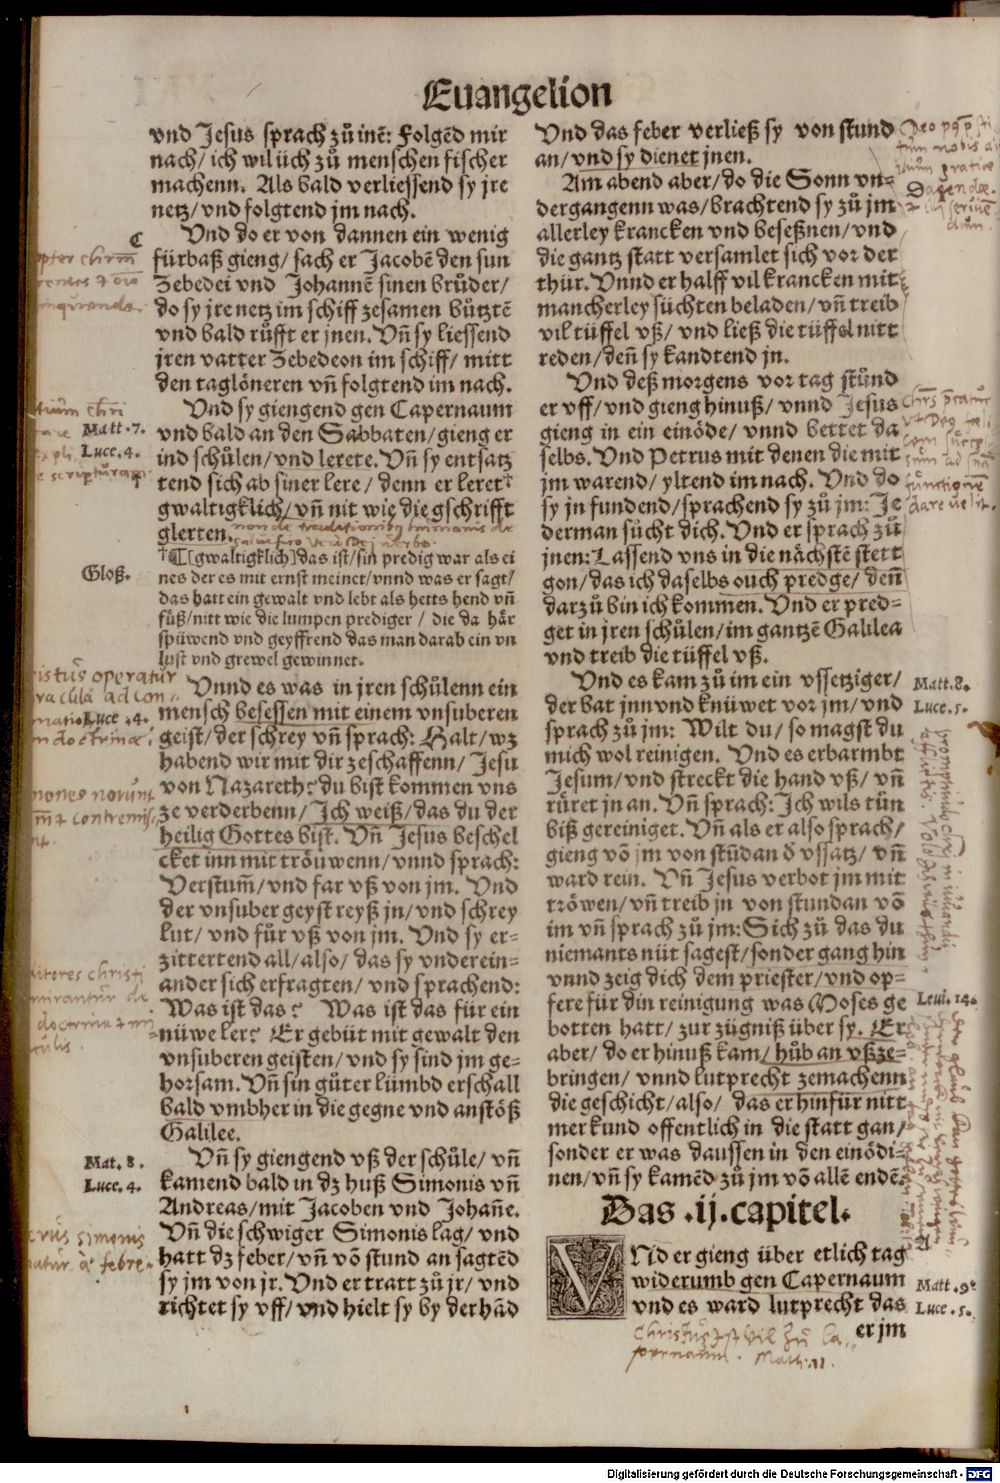 Euangelion
vnd Jesus sprach zů inē: Folgēd mir
nach/ ich wil üch zů menschen fischer
machenn. Als bald verliessend sy jre
netz/ vnd folgtend jm nach.
C
Vnd do er von dannen ein wenig
fürbaß gieng/ sach er Jacobē den sun
Zebedei vnd Johannē sinen brůder/
do sy jre netz im schiff zesamen bůtztē
vnd bald růfft er jnen. Vñ sy liessend
jren vatter Zebedeon im schiff/ mitt
den taglöneren vñ folgtend im nach.
Vnd sy giengend gen Capernaum
Matt.7.
vnd bald an den Sabbaten/ gieng er
Luce.4.
ind schůlen/ vnd lerete. Vñ sy entsatz
tend sich ab siner lere/ denn er leret
gwaltigklich/ vñ nit wie die gschrifft
glerten.
Gloß.
¶[gwaltigklich]das ist/ sin predig war als ei
nes der es mit ernst meinet/ vnnd was er sagt/
das hatt ein gewalt vnd lebt als hetts hend vñ
fůß/ nitt wie die lumpen prediger / die da här
spüwend vnd geyffrend das man darab ein vn
lust vnd grewel gewinnet.
Vnnd es was in jren schůlenn ein
Luce.4.
mensch besessen mit einem vnsuberen
geist/ der schrey vñ sprach: Halt/ wz
habend wir mit dir zeschaffenn/ Jesu
von Nazareth? du bist kommen vns
ze verderbenn/ Ich weiß/ das du der
heilig Gottes bist. Vñ Jesus beschel
cket inn mit tröuwenn/ vnnd sprach:
Verstum̄/ vnd far vß von jm. Vnd
der vnsuber geyst reyß jn/ vnd schrey
lut/ vnd fůr vß von jm. Vnd sy er-
zittertend all/ also/ das sy vnderein-
ander sich erfragten/ vnd sprachend:
Was ist das? Was ist das für ein
nüwe ler? Er gebüt mit gewalt den
vnsuberen geisten/ vnd sy sind jm ge-
horsam. Vñ sin gůter lümbd erschall
bald vmbher in die gegne vnd anstöß
Galilee.
Mat.8.
Vñ sy giengend vß der schůle/ vñ
Luce.4.
kamend bald in dz huß Simonis vñ
Andreas/ mit Jacoben vnd Johañe.
Vñ die schwiger Simonis lag/ vnd
hatt dz feber/ vñ vō stund an sagtēd
sy jm von jr. Vnd er tratt zů jr/ vnd
richtet sy vff/ vnd hielt sy by der hād
Vnd das feber verließ sy von stund
an/ vnd sy dienet jnen.
D
Am abend aber/ do die Sonn vn-
dergangenn was/ brachtend sy zů jm
allerley krancken vnd beseßnen/ vnd
die gantz statt versamlet sich vor der
thür. Vnnd er halff vil krancken mit
mancherley süchten beladen/ vñ treib
vil tüffel vß/ vnd ließ die tüffel nitt
reden/ deñ sy kandtend jn.
Vnd deß morgens vor tag stůnd
er vff/ vnd gieng hinuß/ vnnd Jesus
gieng in ein einöde/ vnnd bettet da
selbs. Vnd Petrus mit denen die mit
jm warend/ yltend im nach. Vnd do
sy jn fundend/ sprachend sy zů jm: Je
derman sůcht dich. Vnd er sprach zů
jnen: Lassend vns in die nächstē stett
gon/ das ich daselbs ouch predge/ deñ
darzů bin ich kommen. Vnd er pred-
get in jren schůlen/ im gantzē Galilea
vnd treib die tüffel vß.
Matt.8.
Vnd es kam zů im ein vssetziger/
Luce.5.
der bat jnn vnd knüwet vor jm/ vnd
sprach zů jm: Wilt du/ so magst du
mich wol reinigen. Vnd es erbarmbt
Jesum/ vnd streckt die hand vß/ vñ
růret jn an. Vñ sprach: Ich wils tůn
biß gereiniget. Vñ als er also sprach/
gieng vō jm von stūdan đ vssatz/ vñ
ward rein. Vñ Jesus verbot jm mit
tröwen/ vñ treib jn von stundan vō
im vñ sprach zů jm: Sich zů das du
niemants nüt sagest/ sonder gang hin
vnnd zeig dich dem priester/ vnd op-
Leui.14.
fere für din reinigung was Moses ge
botten hatt/ zur zügniß über sy. Er
aber/ do er hinuß kam/ hůb an vßze-
bringen/ vnnd lutprecht zemachenn
die geschicht/ also/ das er hinfür nitt
mer kund offentlich in die statt gan/
sonder er was daussen in den einödi-
nen/ vñ sy kamēd zů jm vō allē endē.
Das .ij. capitel.
A
VNd er gieng über etlich tag
Matt.9.
widerumb gen Capernaum
Luce.5.
vnd es ward lutprecht das
er jm
Digitalisierung gefördert durch die Deutsche Forschungsgemeinschaft - DFG